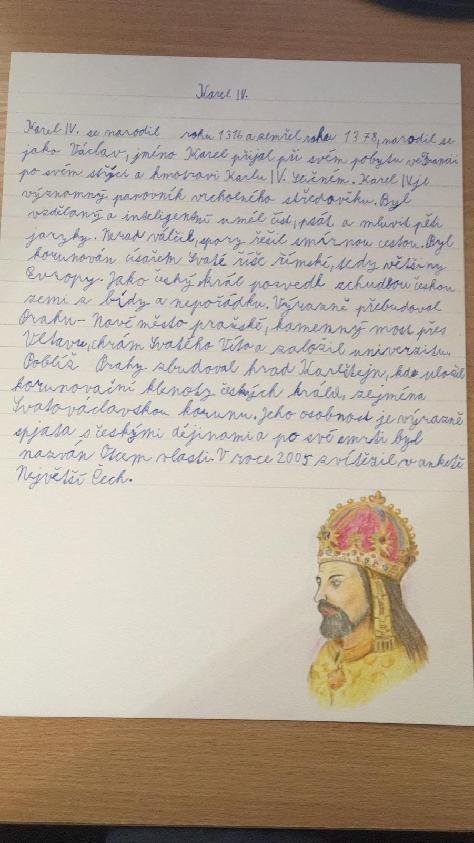 Karel IV.
Karel IV. se narodil roku 1316 a zemřel roku 1378, narodil se
jako Václav, jméno Karel přijal při svém pobytu ve Francii
po svém strýci a kmotrovi Karlu IV. Sličném. Karel IV. je
významný panovník vrcholného středověku. Byl
vzdělaný a inteligentní uměl číst, psát a mluvit pěti
jazyky. Nerad válčil, spory řešil smírnou cestou. Byl
korunován císařem Svaté říše římské, tedy většiny
Evropy. Jako český král pozvedl zchudlou českou
zemi z bídy a nepořádku. Výrazně přebudoval
Prahu - Nové město pražské, kamenný most přes
Vltavu, chrám Svatého Víta a založil univerzitu.
Poblíž Prahy zbudoval hrad Karlštejn, kde uložil
korunovační klenoty českých králů, zejména
Svatováclavskou korunu. Jeho osobnost je výrazně
spjata s českými dějinami a po své smrti byl
nazván Otcem vlasti. V roce 2005 zvítězil v anketě
Největší Čech.